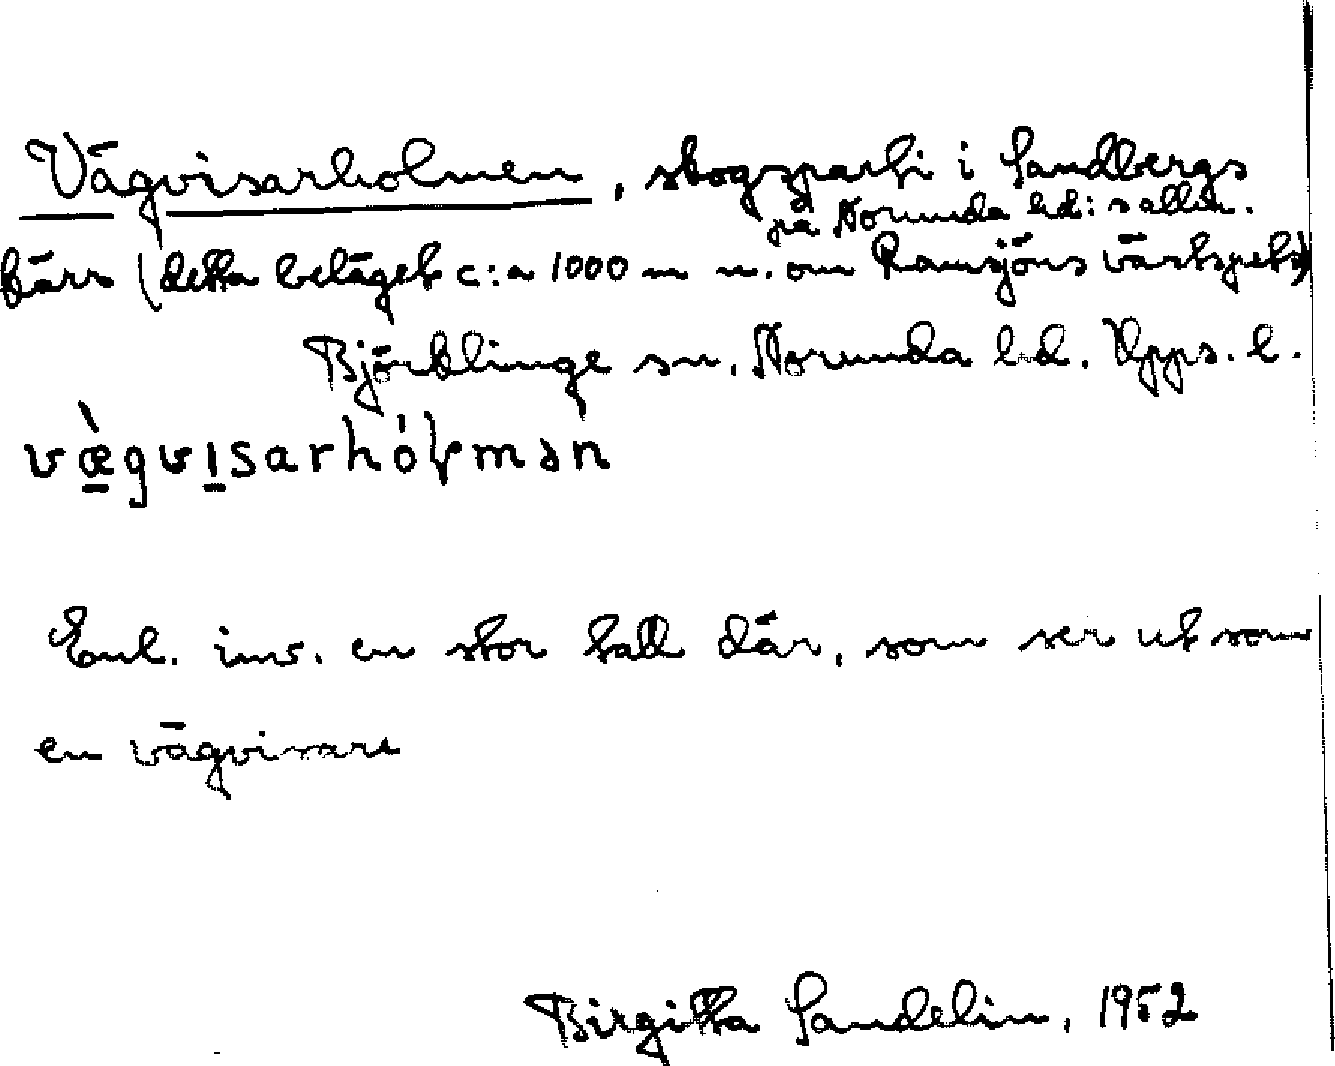 Vägvisarholmen, skogsparti i Sandbergs
på Norunda hd:s allm.
kärr (detta beläget c:a 1000 m n. om Ramsjöns västspets)
Björklinge sn. Norunda hd. Upps. l.
væ̀gvısarhóɫmən
Enl. inv. en stor tall där, som ser ut som
en vägvisare
Birgitta Sandelin, 1952